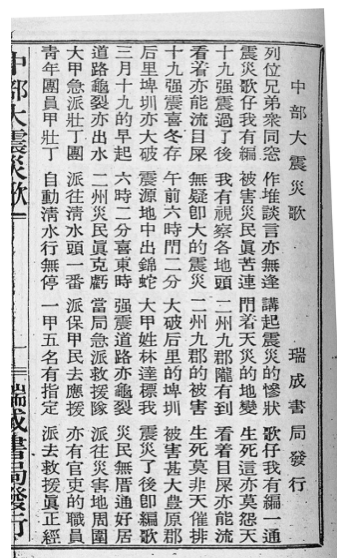 中部大震災歌 瑞成書局發行
列位兄弟衆同窓 作堆談言亦無逢 講起震災的慘狀 歌仔我有編一通
震災歌仔我有編 被害災民眞苦連 問着天災的地變 生死這亦莫怨天
十九强震過了後 我有視察各地頭 二州九郡隴有到 看着目屎亦能流
看着亦能流目屎 無疑卽大的震災 二州九郡的被害 生死莫非天催排
十九强震喜冬存 午前六時門二分 大破后里的埤圳 被害甚大豊原郡
后里埤圳亦大破 震源地中出錦蛇 大甲姓林達標我 震災了後卽編歌
三月十九的早起 六時二分喜東時 强震道路亦龜裂 災民無厝通好居
道路龜裂亦出水 二州災民眞克虧 當局急派救援隊 派往災害地周圍
大甲急派壯丁團 派往淸水頭一番 派保甲民去應援 亦有官吏的職員
青年團員甲壯丁 自動淸水行無停 一甲五名有指定 派去救援眞正經
中部大震災歌 一 瑞成書局發行